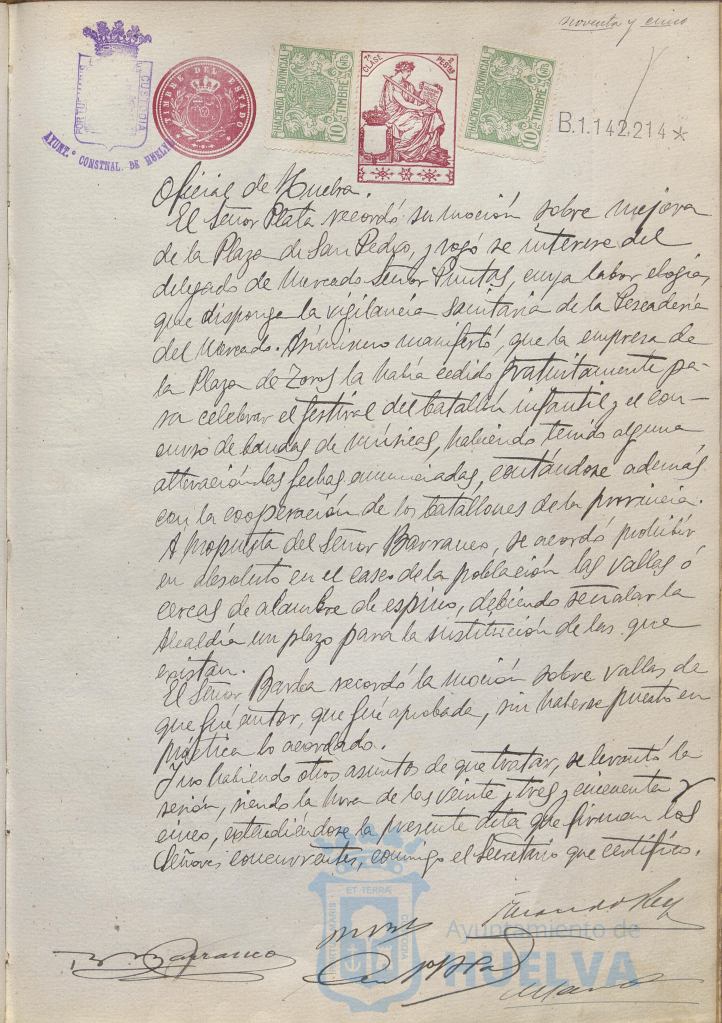 noventa y cinco
PORTUS MARIS
CUSTODIA
AYUNT.º CONSTNAL. DE HUELVA
TIMBRE DEL ESTADO
HACIENDA PROVINCIAL
TIMBRE
10 Cts
7ª CLASE
2 PESETAS
HACIENDA PROVINCIAL
TIMBRE
10 Cts
B.1.142.214*
Oficial de Huelva.
El Señor Plata recordó su moción sobre mejora
de la Plaza de San Pedro, y rogó se interese del
delegado de Mercado Señor Puntas, cuya labor elogia,
que disponga la vigilancia sanitaria de la Pescadería
del Mercado. Asimismo manifestó, que la empresa de
la Plaza de Toros la había cedido gratuitamente pa-
ra celebrar el festival del batallón infantil y el con-
curso de bandas de músicas, habiendo tenido alguna
alteración las fechas anunciadas, contándose además
con la cooperación de los batallones de la provincia.
A propuesta del Señor Barranco, se acordó prohibir
en absoluto en el casco de la población las vallas ó
cercas de alambre de espino, debiendo señalar la
Alcaldía un plazo para la sustitución de las que
existan.
El Señor Barba recordó la moción sobre vallas de
que fué autor, que fué aprobada, sin haberse puesto en
práctica lo acordado.
Y no habiendo otros asuntos de que tratar, se levantó la
sesión, siendo la hora de las veinte y tres y cincuenta y
cinco, extendiéndose la presente acta que firman los
Señores concurrentes, conmigo el Secretario que certifico.
ET TERRA
Ayuntamiento de
HUELVA
Barranco